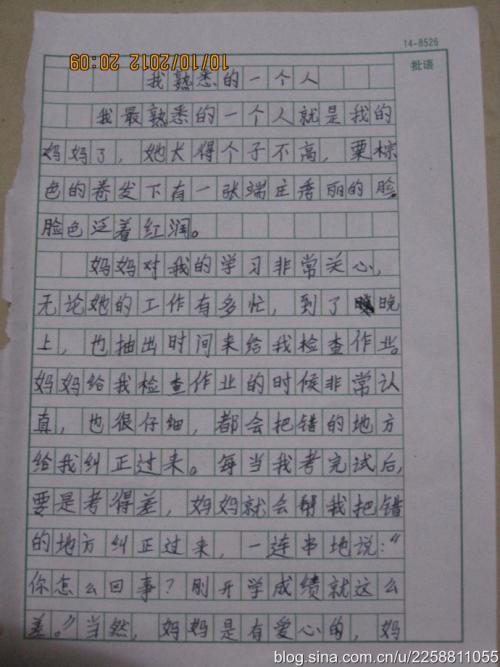 14-8526
批语
10/10/2012 20:09
我熟悉的一个人
我最熟悉的一个人就是我的
妈妈了，她大得个子不高，粟棕
色的卷发下有一张端庄秀丽的脸，
脸色泛着红润。
妈妈对我的学习非常关心，
无论她的工作有多忙，到了晚
上，也抽出时间来给我检查作业。
妈妈给我检查作业的时候非常认
真，也很仔细，都会把错的地方
给我纠正过来。每当我考完试后，
要是考得差，妈妈就会帮我把错
的地方纠正过来，一连串地说：“
你怎么回事？刚开学成绩就这么
差。”当然，妈妈是有爱心的，妈
blog.sina.com.cn/u/2258811055